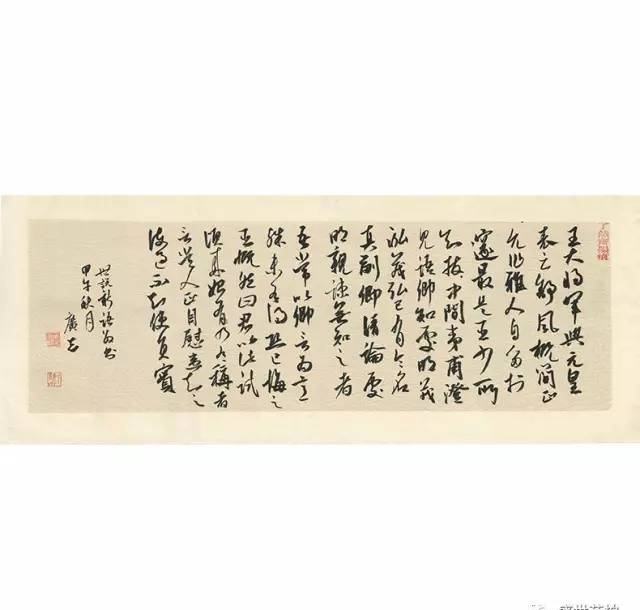 王大將軍與元皇
表云舒風概簡正
允作雅人自多於
邃最是臣少所
知拔中間夷甫澄
見語卿知處明茂
弘茂弘已有令名
真副卿清論處
明親疎無知之者
吾常以卿言為意
殊未有得恐已悔之
臣慨然曰君以此試
頃來始有乃有稱者
言常人正自患知之
使過不知使負實
世說新語 書
甲午秋月
廣